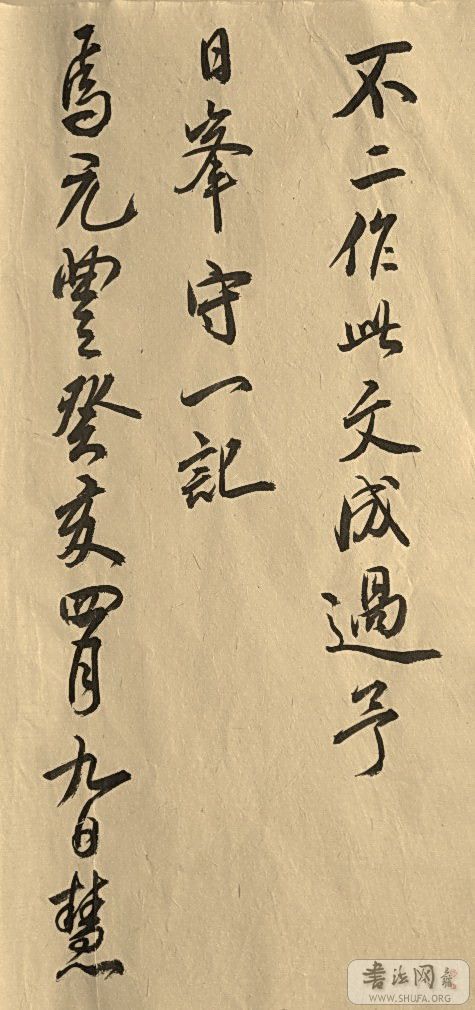 焉元豐癸亥四月九日慧
日峯守一記
不二作此文成過予
書法网
WWW.SHUFA.ORG